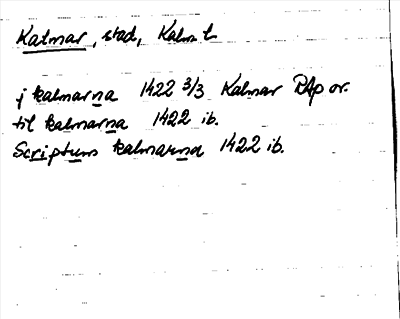 Kalmar, stad, Kalm l.
j kalmarna 1422 3/3 Kalmar RAp or.
til kalmarna 1422 ib.
Scriptum kalmarna 1422 ib.